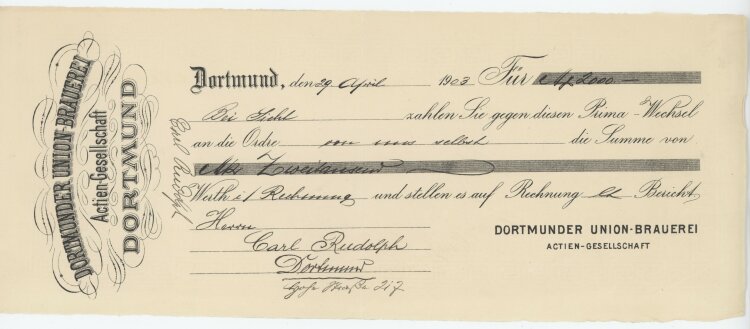 DORTMUNDER UNION-BRAUEREI
Actien-Gesellschaft
DORTMUND
Dortmund, den 29 April 1903 Für Mk 2000.—
Bei Sicht zahlen Sie gegen diesen Prima-Wechsel
an die Ordre von uns selbst die Summe von
Mk Zweitausend
Werth i/ Rechnung und stellen es auf Rechnung lt Bericht
Herrn
Carl Rudolph
Dortmund
217
DORTMUNDER UNION-BRAUEREI
ACTIEN-GESELLSCHAFT
Carl Rudolph